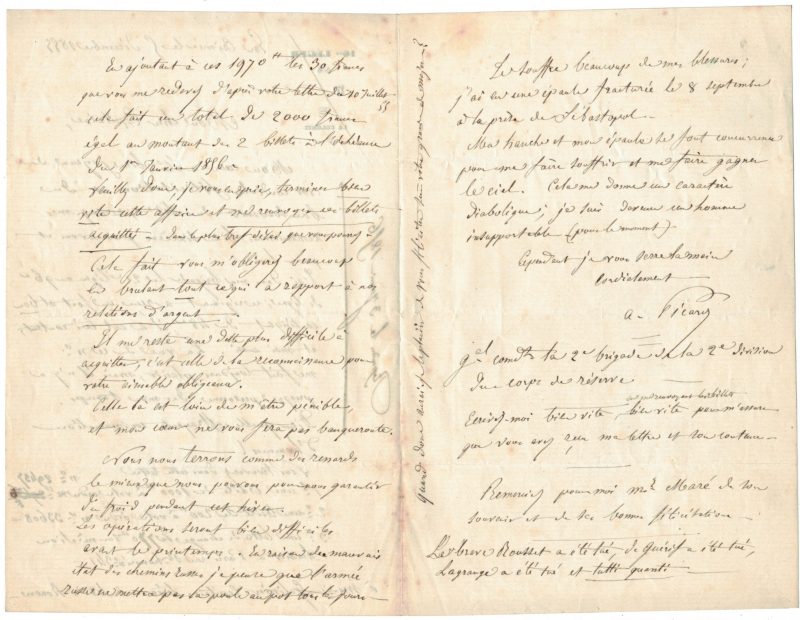 En ajoutant à ces 1970 ᶠᶠ les 30 francs
que vous me redevez d'après votre lettre du 10 Juillet 55
cela fait un total de 2000 francs
égal au montant des 2 billets à l'échéance
du 1er Janvier 1856.
Veuillez donc, je vous en prie, terminer bien
vite cette affaire et me renvoyer ces billets
acquittés - dans le plus bref délai que vous pourrez
Cela fait vous m'obligerez beaucoup
en brulant tout ce qui a rapport à nos
relations d'argent.
Il me reste une dette plus difficile à
acquitter, c'est celle de la reconnaissance pour
votre aimable obligeance.
Celle là est loin de m'être pénible,
et mon cœur ne vous fera pas banqueroute.
Nous nous terrons comme des renards
le mieux que nous pouvons pour nous garantir
du froid pendant cet hiver.
Les opérations seront bien difficiles
avant le printemps. En raison du mauvais
état des chemins russes je pense que l'armée
russe ne mettra pas la poule au pot tous les jours
Quand donc aurais-je
Je souffre beaucoup de mes blessures;
j'ai eu une épaule fracturée le 8 septembre
à la prise de Sébastopol.
Ma hanche et mon épaule se font concurrence
pour me faire souffrir et me faire gagner
le ciel. Cela me donne un caractère
diabolique; je suis devenu un homme
insupportable (pour le moment).
Cependant je vous serre la main
cordialement
a. Picard
gal comdt la 2e brigade de la 2e division
du corps de réserve
Ecrivez-moi bien vite, bien vite pour m'assurer
en me renvoyant les billets
que vous avez reçu ma lettre et son contenu -
Remerciez pour moi mr Maré de son
souvenir et de ses bonnes félicitations -
Le brave Rousset a été tué, de a été tué,
Lagrange a été tué et tutti quanti -